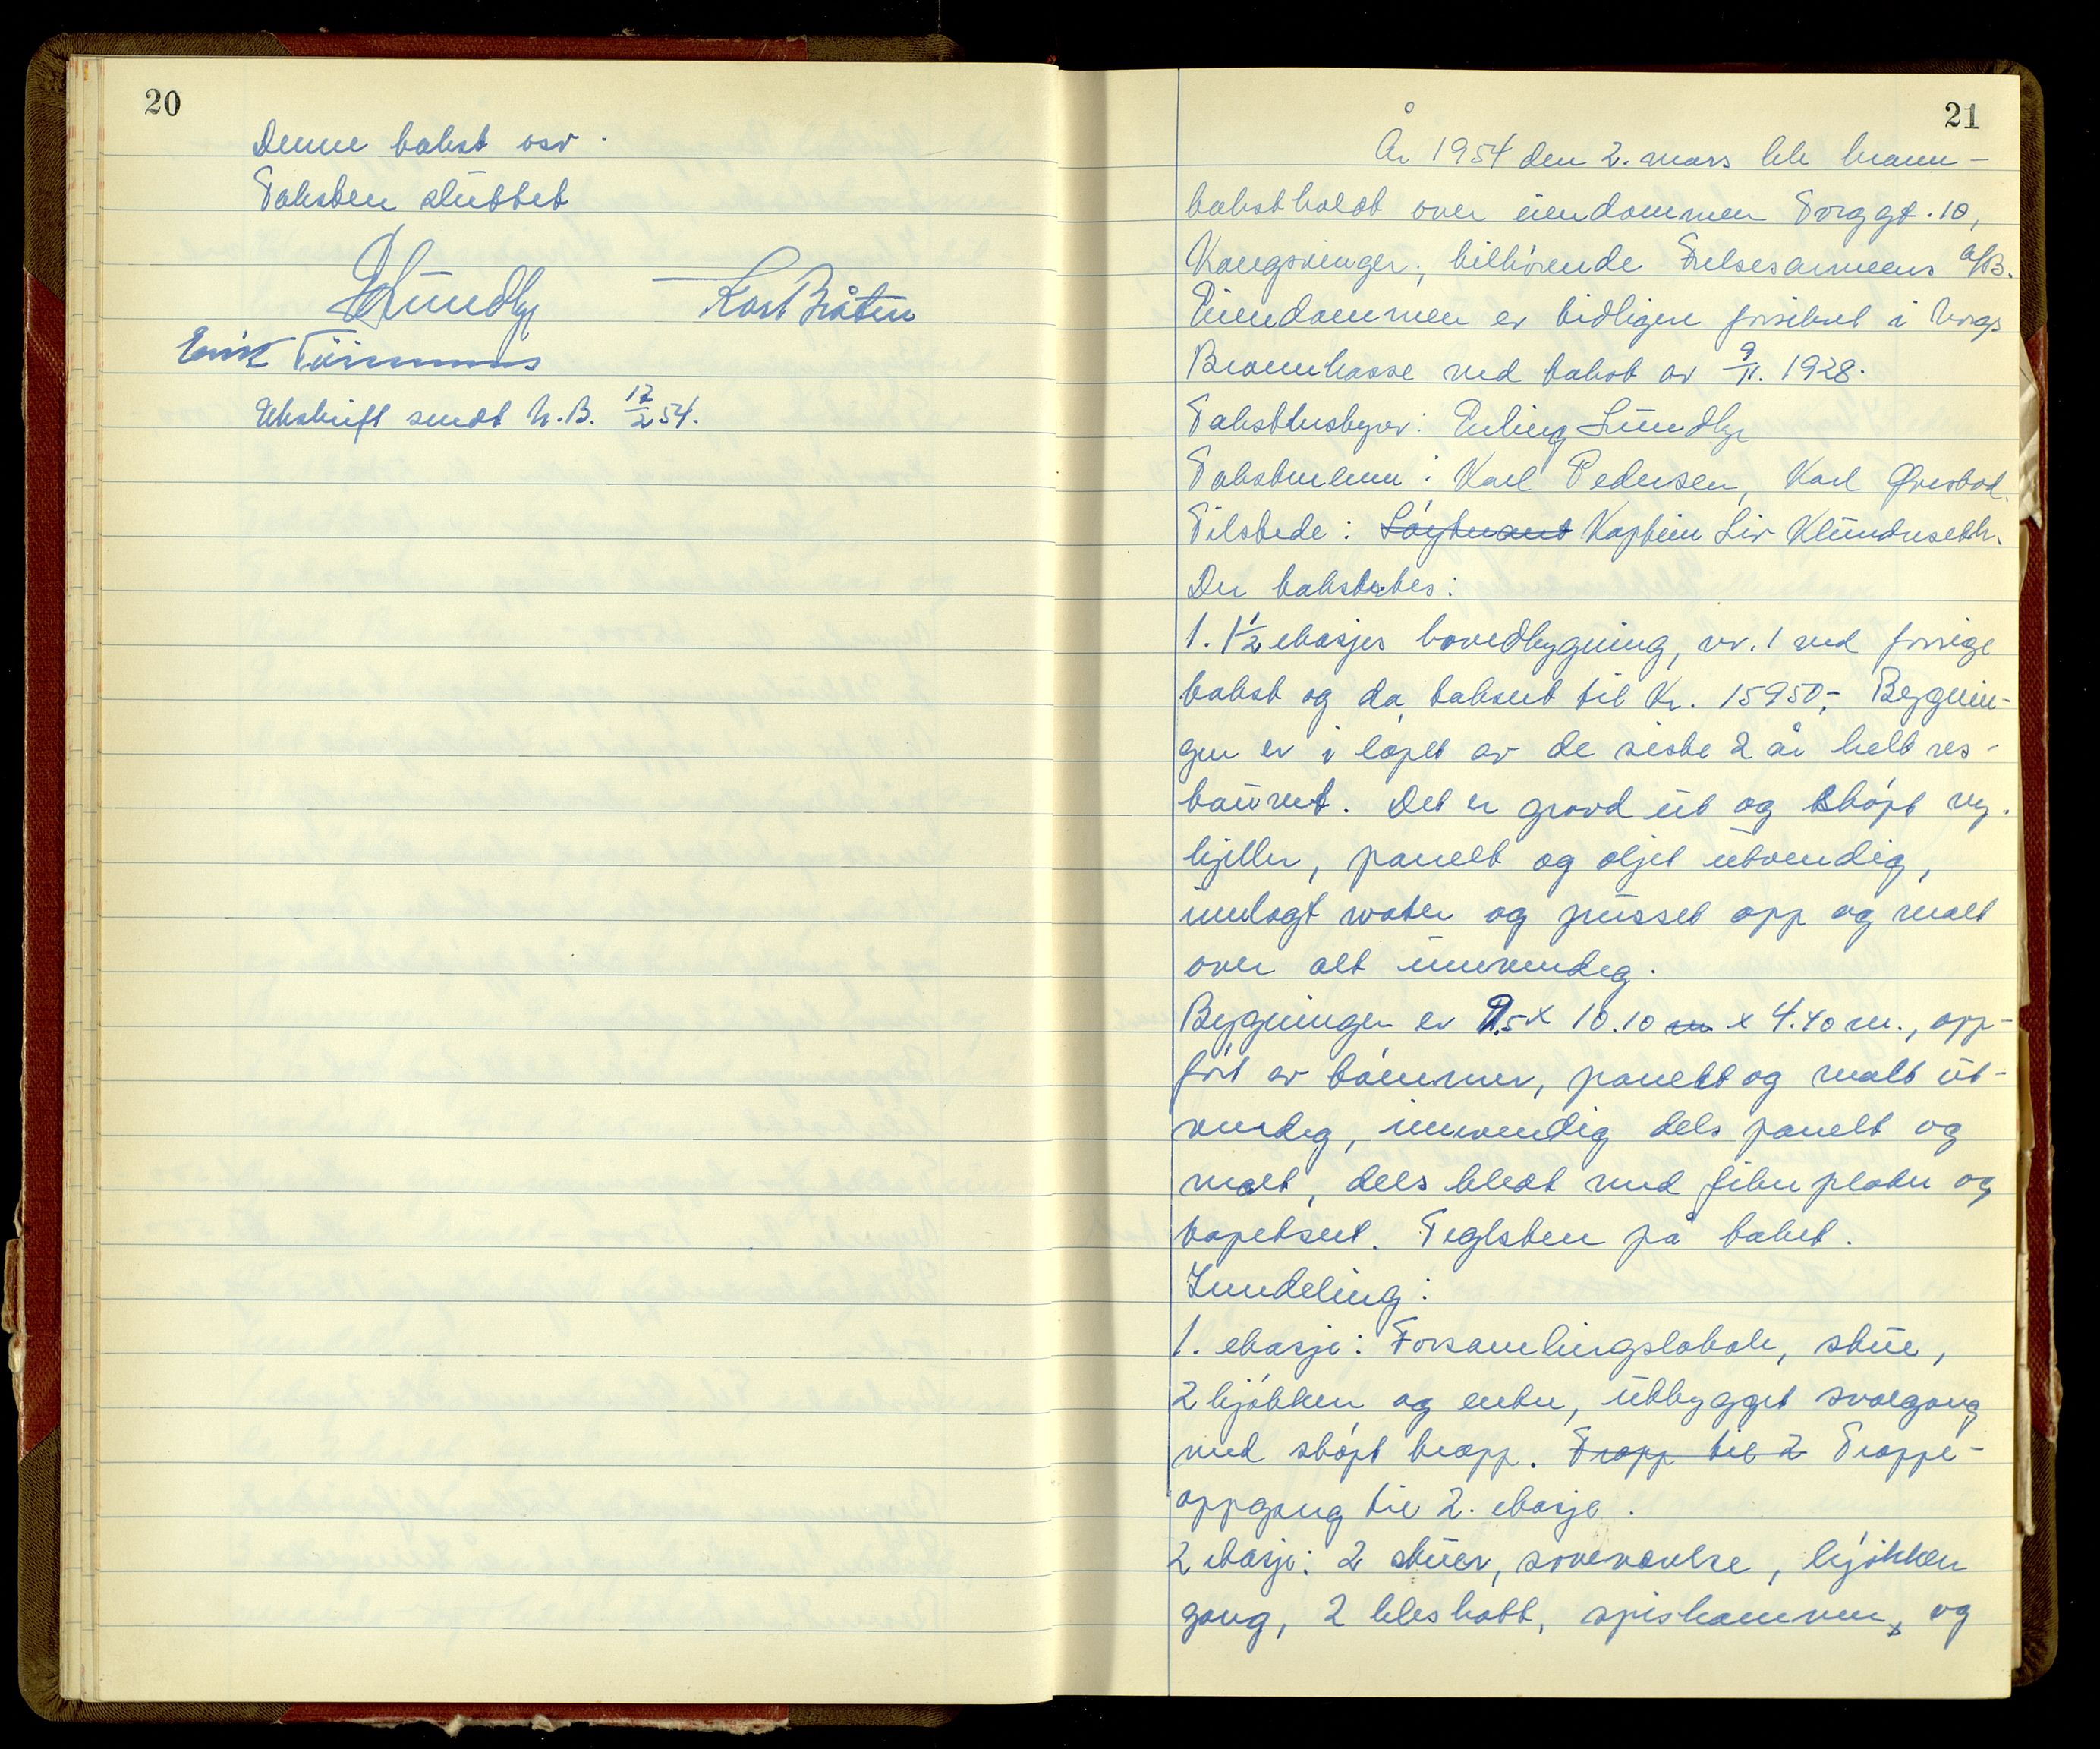 20
Denne takst osv.
Taksten sluttet
E Lundby Karl Bråten
Erik
Utskrift sendt N.B. 12/2 54.
21
År 1954 den 2. mars ble brann-
takst holdt over eiendommen Torggt. 10,
Kongsvinger, tilhørende Frelsesarmeens A/B.
Eiendommen er tidligere forsikret i Norgs
Brannkasse ved takst av 9/11. 1928.
Takstbestyrer: Erling Lundby
Takstmenn: Karl Pedersen, Karl Øverbod.
Tilstede: Løytnant Kaptein Liv Klundseth.
Der takstertes:
1. 1½ etasjes hovedbygning, nr. 1 ved forrige
takst og da taksert til Kr. 15950,- Bygnin-
gen er i løpet av de siste 2 år helt res-
taurert. Det er gravd ut og støpt ny
kjeller, panelt og oljet utvendig,
innlagt water og pusset opp og malt
over alt innvendig.
Bygningen er 9.5 x 10.10 m x 4.40 m., opp-
ført av tømmer, panelt og malt ut-
vendig, innvendig dels panelt og
malt, dels kledt med fiberplater og
tapetsert. Teglsten på taket.
Inndeling:
1. etasje: Forsamlingslokale, stue,
2 kjøkken og entre, utbygget svalgang
med støpt trapp. Trapp til 2 Trappe-
oppgang til 2. etasje.
2 etasje: 2 stuer, soveværelse, kjøkken
gang, 2 kleskott, spiskammer, og